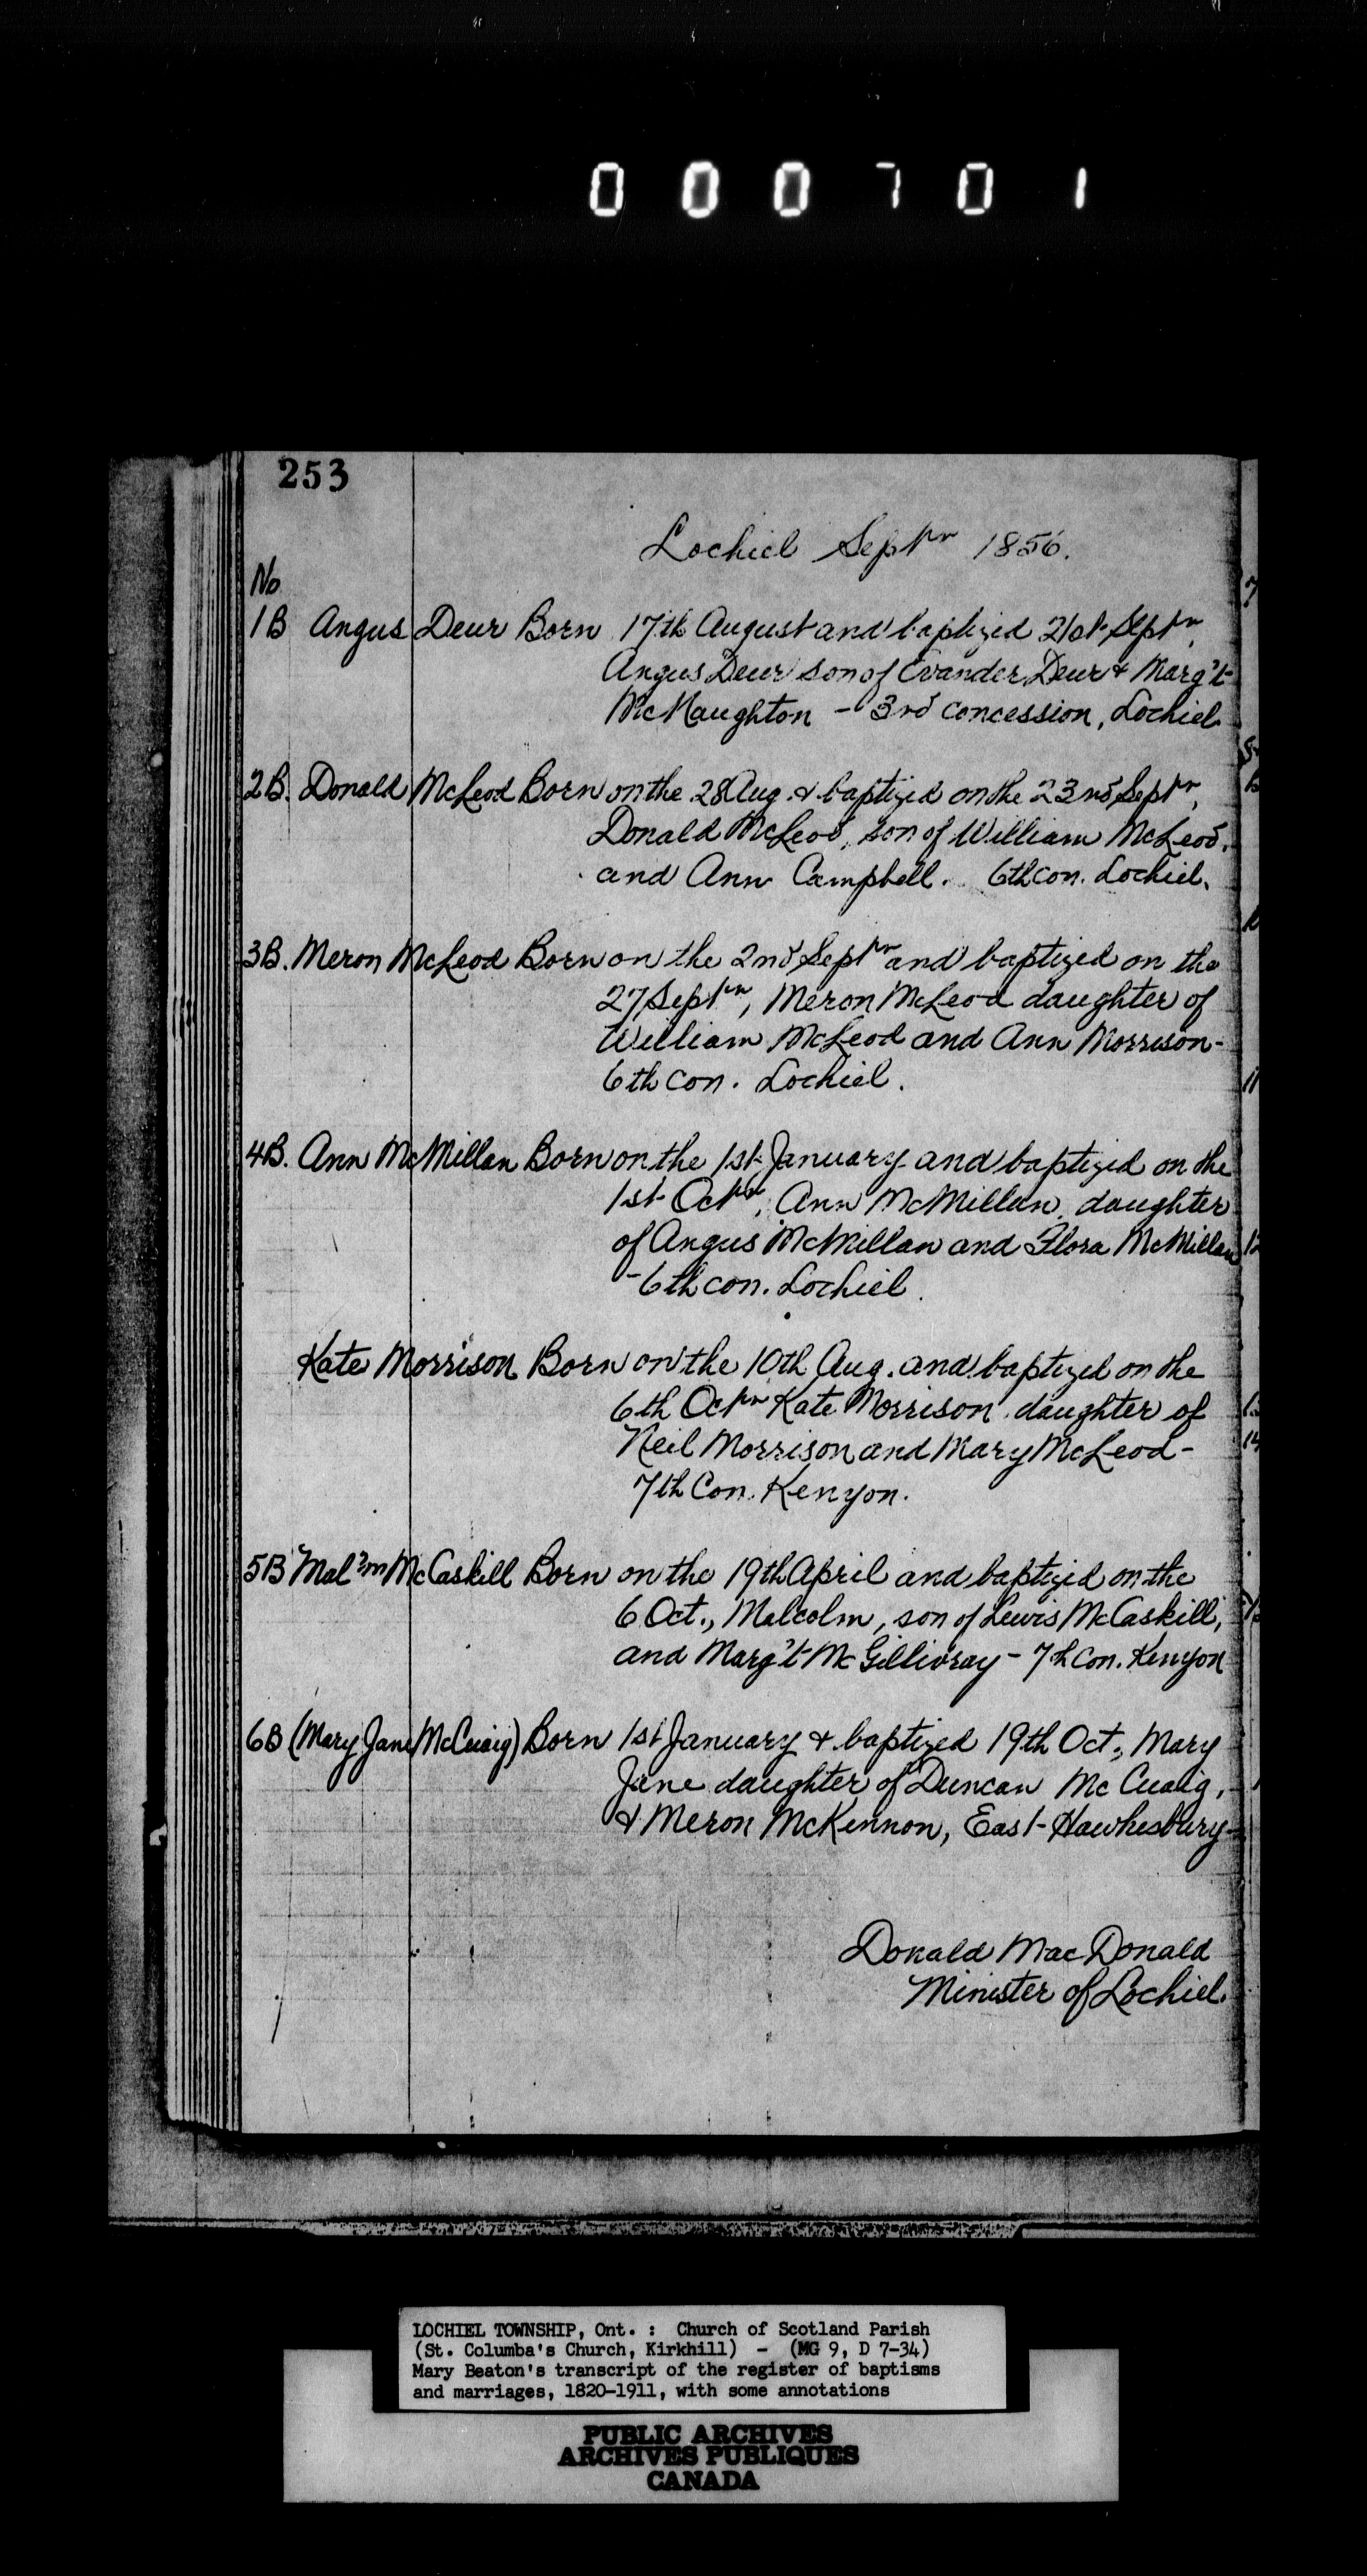 000701
253
Lochiel Septr 1856.
No
1B Angus Deur Born 17th August and baptized 21st Septr,
Angus Deur son of Evander Deur & Marg't
McNaughton - 3rd concession, Lochiel
2B. Donald McLeod Born on the 28 Aug. & baptized on the 23rd Septr,
Donald McLeod, son of William McLeod,
and Ann Campbell. 6th con. Lochiel.
3B. Meron McLeod Born on the 2nd Septr and baptized on the
27 Septr, Meron McLeod daughter of
William McLeod and Ann Morrison-
6th con. Lochiel.
4B. Ann McMillan Born on the 1st January and baptized on the
1st Octbr, Ann McMillan, daughter
of Angus McMillan and Flora McMillan
- 6th con. Lochiel.
Kate Morrison Born on the 10th Aug. and baptized on the
6th Octr Kate Morrison daughter of
Neil Morrison and Mary McLeod -
7th Con. Kenyon.
5B Malm McCaskill Born on the 19th April and baptized on the
6 Oct., Malcolm, son of Lewis McCaskill,
and Marg't McGillivray - 7th Con. Kenyon
6B (Mary Jane McCuaig) Born 1st January & baptized 19th Oct., Mary
Jane daughter of Duncan McCuaig,
& Meron McKennon, East-Hawkesbury-
Donald MacDonald
Minister of Lochiel.
LOCHIEL TOWNSHIP, Ont. : Church of Scotland Parish
(St. Columba's Church, Kirkhill) - (MG 9, D 7-34)
Mary Beaton's transcript of the register of baptisms
and marriages, 1820-1911, with some annotations
PUBLIC ARCHIVES
ARCHIVES PUBLIQUES
CANADA